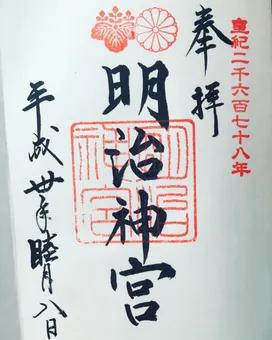 皇紀二千六百七十八年
奉拝
明治神宮
明治神宮
平成卅年睦月八日